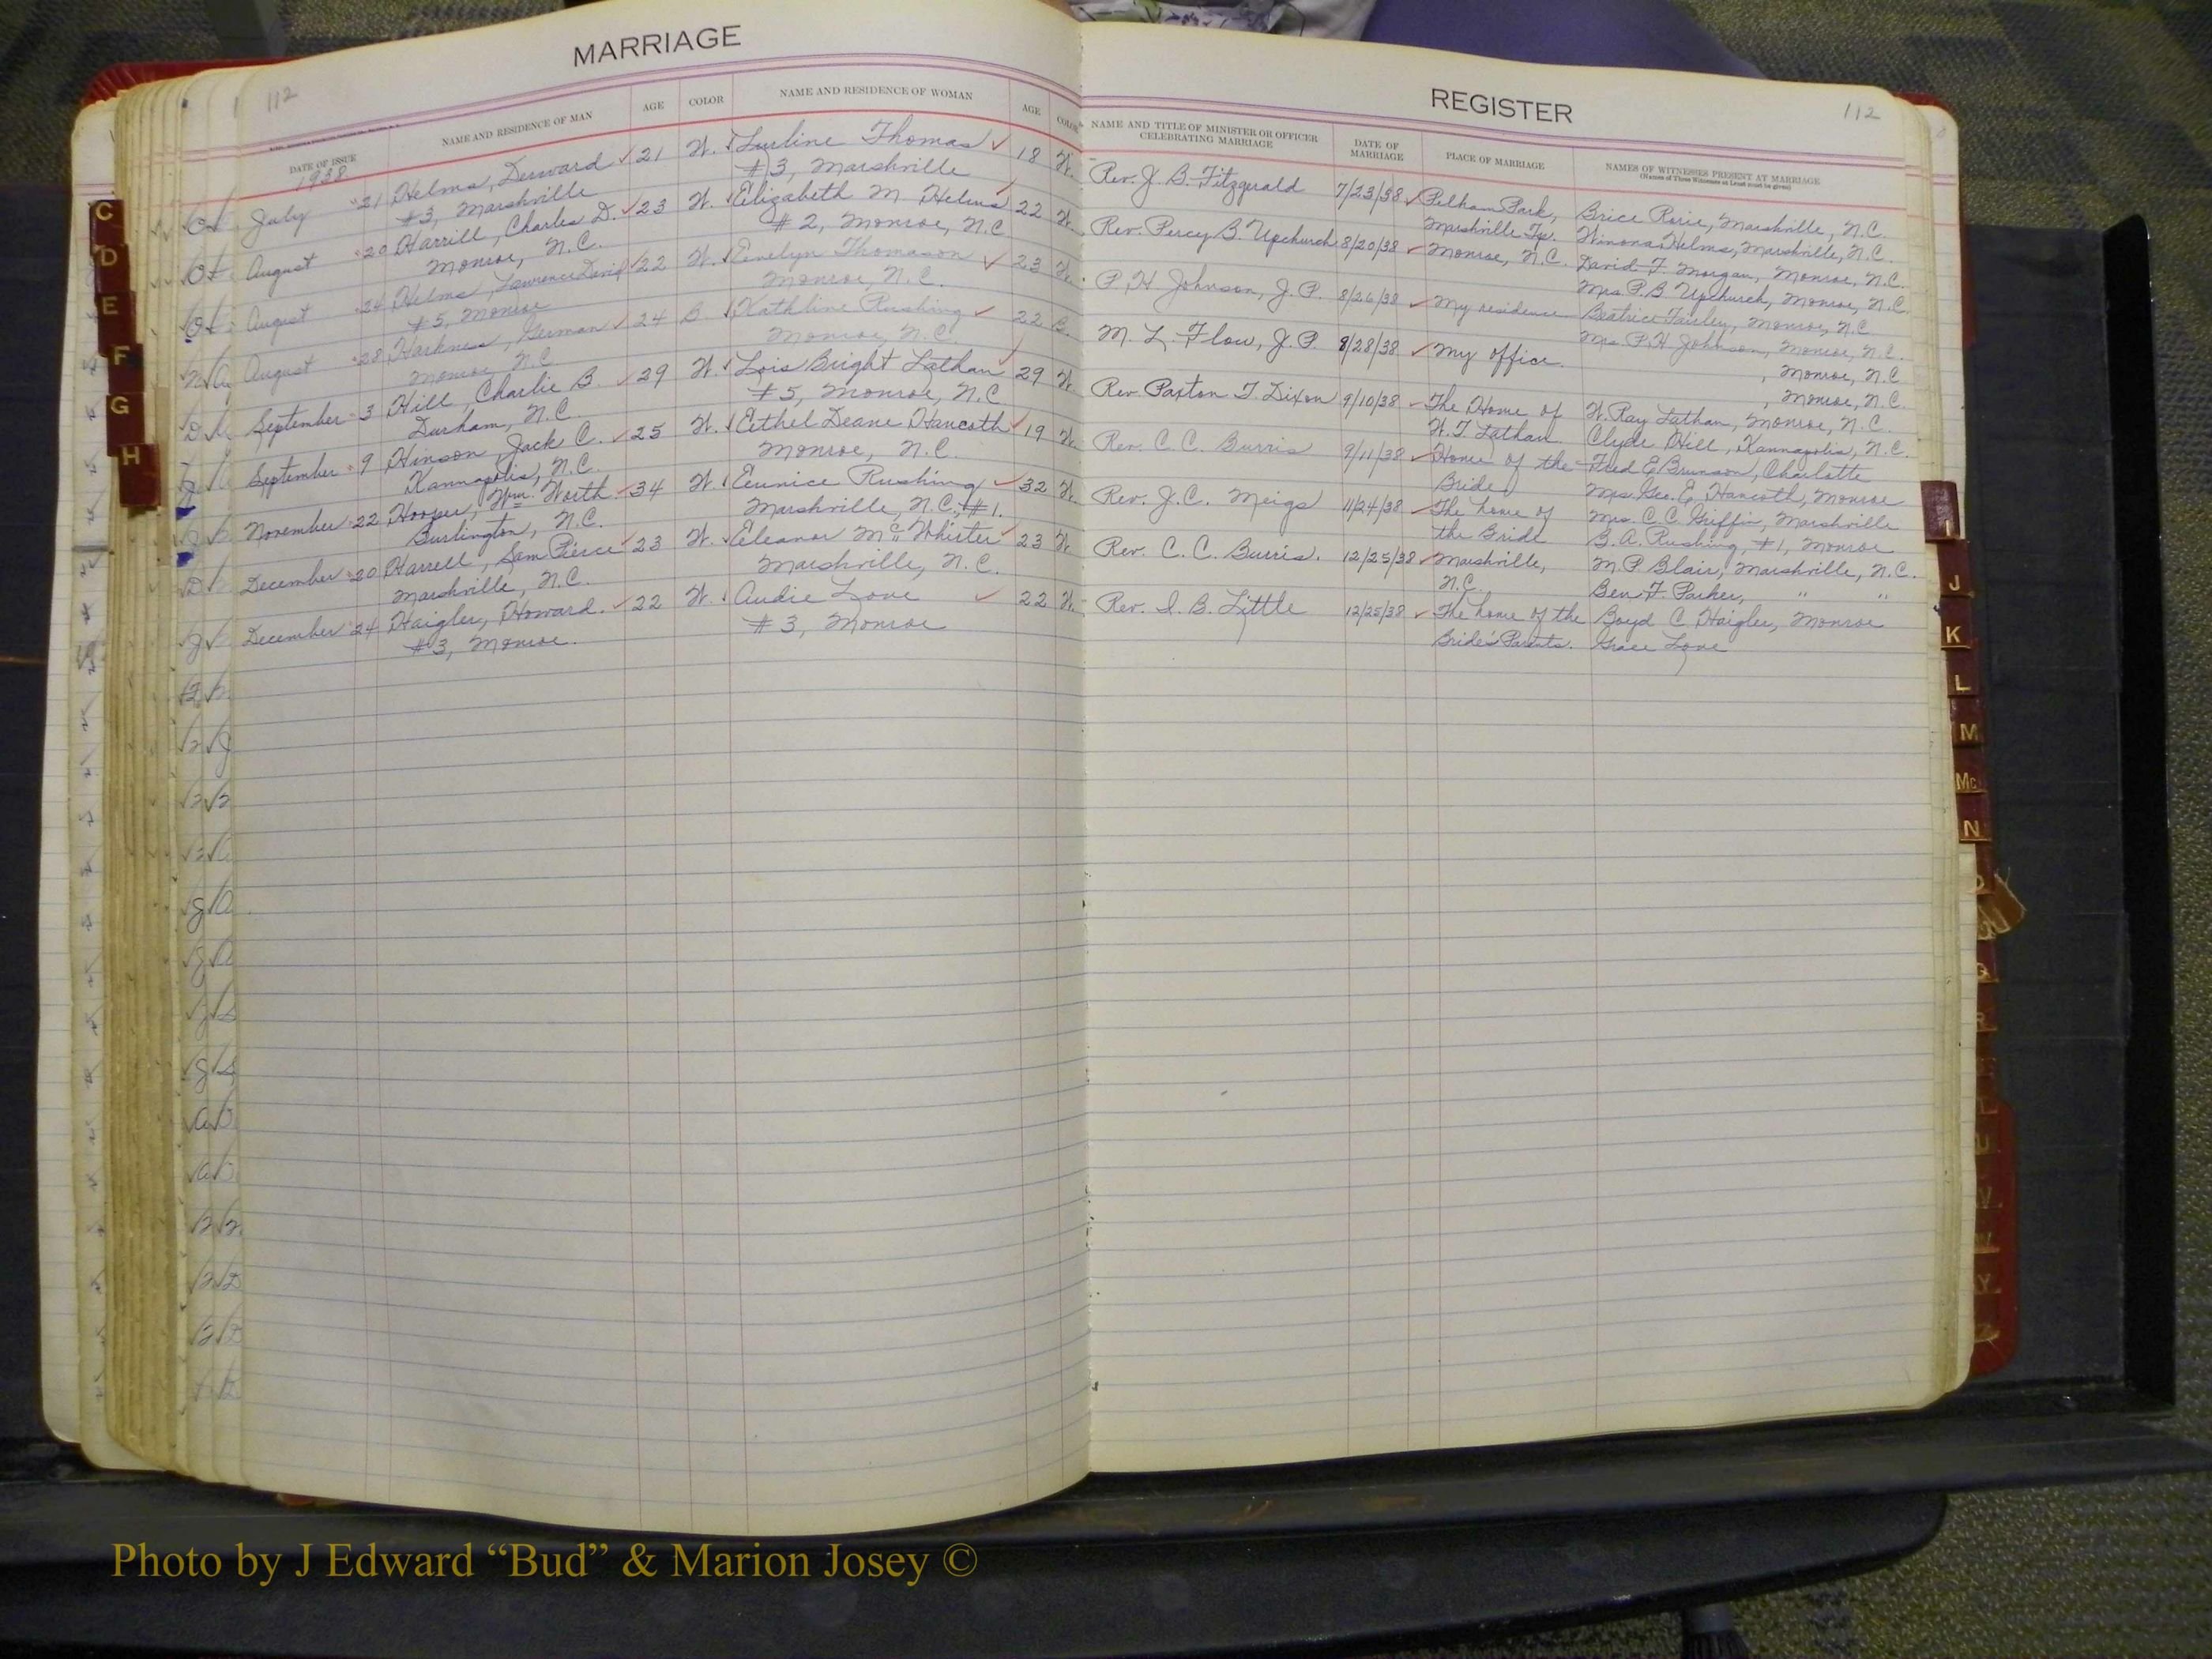 MARRIAGE
112
DATE OF ISSUE
NAME AND RESIDENCE OF MAN
AGE
COLOR
NAME AND RESIDENCE OF WOMAN
AGE
COLOR
1938
July 21 Helms, Derward 21 W. Lurline Thomas 18 W.
#3, Marshville #3, Marshville
August 20 Harrill, Charles D. 23 W. Elizabeth M Helms 22 W.
Monroe, N.C. #2, Monroe, N.C
August 24 Helms, Lawrence David 22 W. Evelyn Thomason 23 W.
#5, Monroe Monroe, N.C.
August 28 Harkness, German 24 B. Kathline Rushing 22 B.
Monroe, N.C Monroe, N.C.
September 3 Hill, Charlie B. 29 W. Lois Bright Lathan 29 W.
Durham, N.C. #5, Monroe, N.C
September 9 Hinson, Jack C. 25 W. Ethel Deane Hancoth 19 W.
Kannapolis, N.C. Monroe, N.C.
November 22 Hooper, Wm. Worth 34 W. Eunice Rushing 32 W.
Burlington, N.C. Marshville, N.C., #1.
December 20 Harrell, Sam Pierce 23 W. Eleanor McWhirter 23 W.
Marshville, N.C. Marshville, N.C.
December 24 Haigler, Howard. 22 W. Audie Love 22 W.
#3, Monroe. #3, Monroe
REGISTER
112
NAME AND TITLE OF MINISTER OR OFFICER
CELEBRATING MARRIAGE
DATE OF
MARRIAGE
PLACE OF MARRIAGE
NAMES OF WITNESSES PRESENT AT MARRIAGE
(Names of Three Witnesses at Least must be given)
Rev. J. B. Fitzgerald 7/23/38 Pelham Park, Brice Rorie, Marshville, N.C.
Marshville Tp. Winona Helms, Marshville, N.C.
Rev. Percy B. Upchurch 8/20/38 Monroe, N.C. David F. Morgan, Monroe, N.C.
Mrs. P. B Upchurch, Monroe, N.C.
P. H Johnson, J. P. 8/26/38 My residence Beatrice Fairley, Monroe, N.C
Mrs. P. H Johnson, Monroe, N.C.
M. L. Flow, J. P. 8/28/38 My office. , Monroe, N.C
, Monroe, N.C.
Rev Paxton T. Dixon 9/10/38 The Home of W. Ray Lathan, Monroe, N.C.
W. T Lathan Clyde Hill, Kannapolis, N.C.
Rev. C. C. Burris 9/11/38 Home of the Fred E Brunson, Charlotte
Bride Mrs. Geo. E. Hancoth, Monroe
Rev. J. C. Meigs 11/24/38 The home of Mrs. C. C. Griffin, Marshville
the Bride B. A. Rushing, #1, Monroe
Rev. C. C. Burris. 12/25/38 Marshville, M. P Blair, Marshville, N.C.
N.C. Ben F. Parker, " "
Rev. I. B. Little 12/25/38 The home of the Boyd C Haigler, Monroe
Bride's Parents. Grace Love
C
D
E
F
G
H
I
J
K
L
M
Mc
N
Photo by J Edward “Bud” & Marion Josey ©